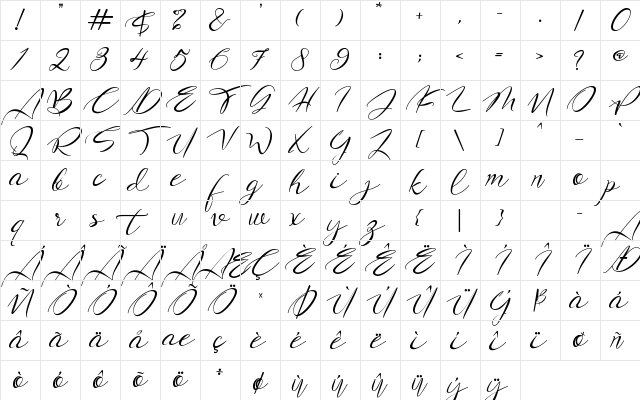 ! " # $ % & ' ( ) * + , - . / 0
1 2 3 4 5 6 7 8 9 : ; < = > ? @
A B C D E F G H I J K L M N O P
Q R S T U V W X Y Z [ \ ] ^ _ `
a b c d e f g h i j k l m n o p
q r s t u v w x y z { | } - À
Á Â Ã Ä Å Æ Ç È É Ê Ë Ì Í Î Ï Ð
Ñ Ò Ó Ô Õ Ö × Ø Ù Ú Û Ü Ý ß à á
â ã ä å æ ç è é ê ë ì í î ï ð ñ
ò ó ô õ ö ÷ ø ù ú û ü ý ÿ